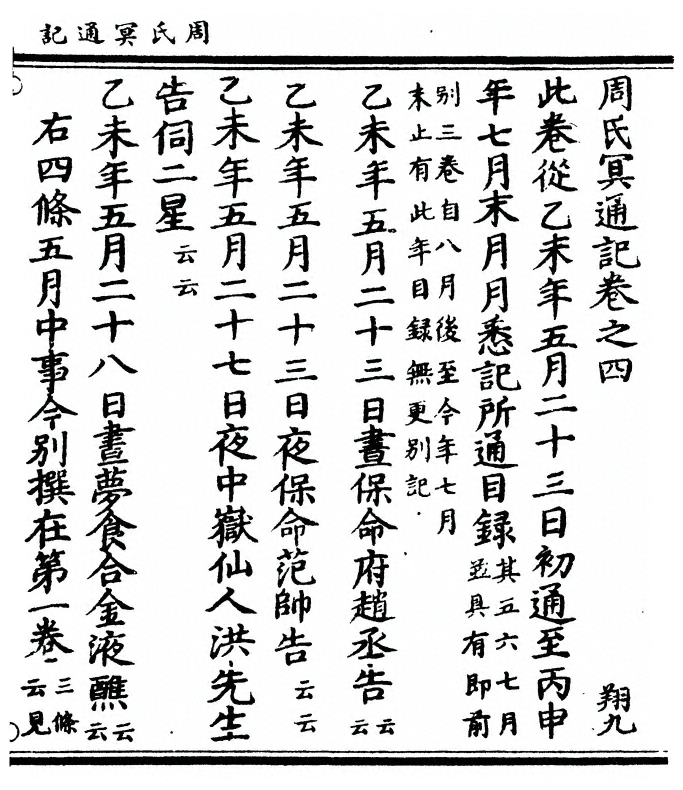 周氏冥通記
周氏冥通記卷之四
翔九
此卷從乙未年五月二十三日初通至丙申
年七月末月月悉記所通目録
其五六七月
並具有即前
别三卷自八月後至今年七月
末止有此年目録無更别記
乙未年五月二十三日晝保命府趙丞告云云
乙未年五月二十三日夜保命范帥告云云
乙未年五月二十七日夜中嶽仙人洪先生
告伺二星云云
乙未年五月二十八日晝夢食合金液醮云云
右四條五月中事今别撰在第一卷
三條
云見